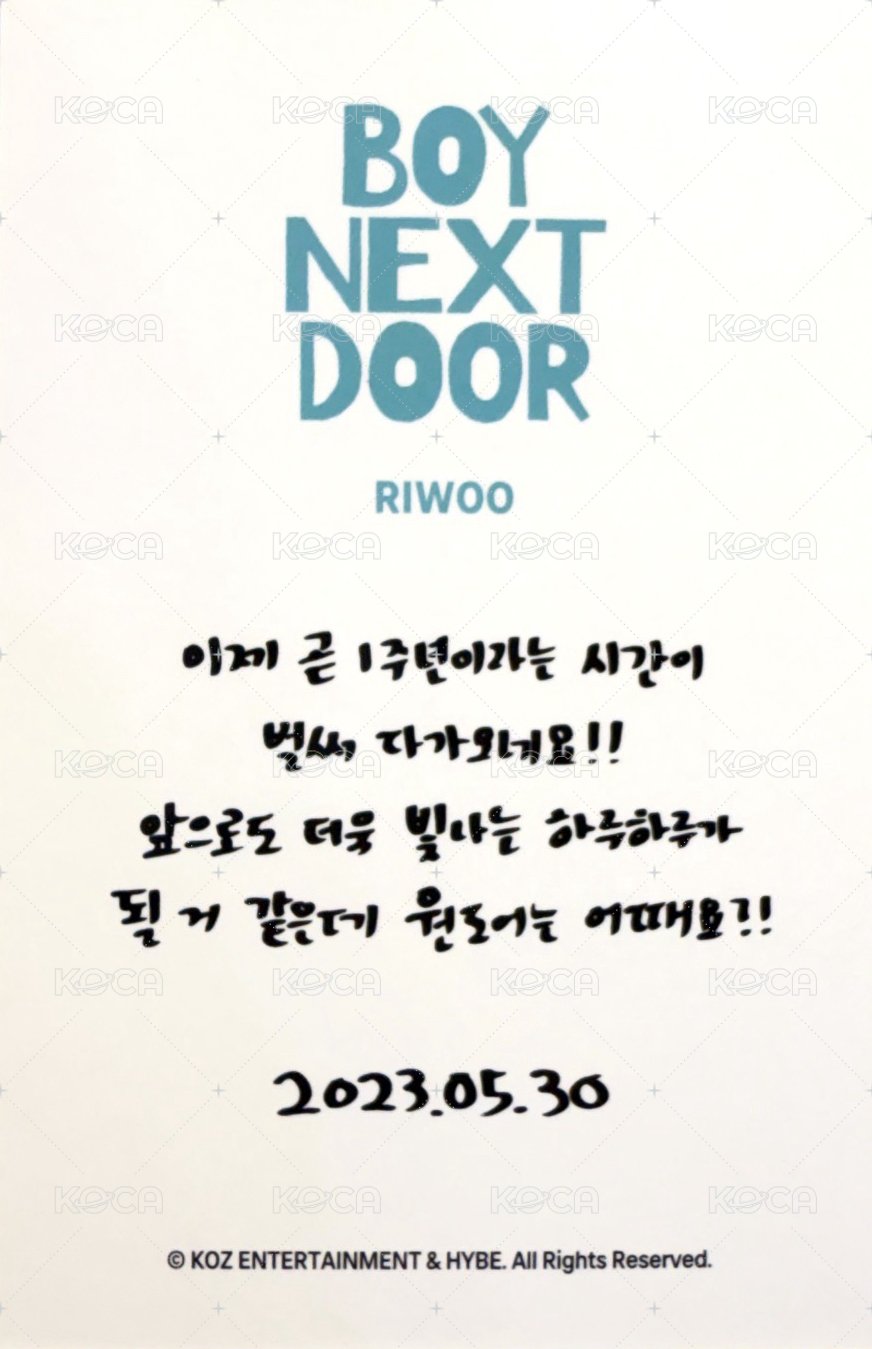 BOY
NEXT
DOOR
RIWOO
이제 곧 1주년이라는 시간이
벌써 다가오네요!!
앞으로도 더욱 빛나는 하루하루가
될 거 같은데 원도어는 어때요?!
2023.05.30
© KOZ ENTERTAINMENT & HYBE. All Rights Reserved.
KOCA